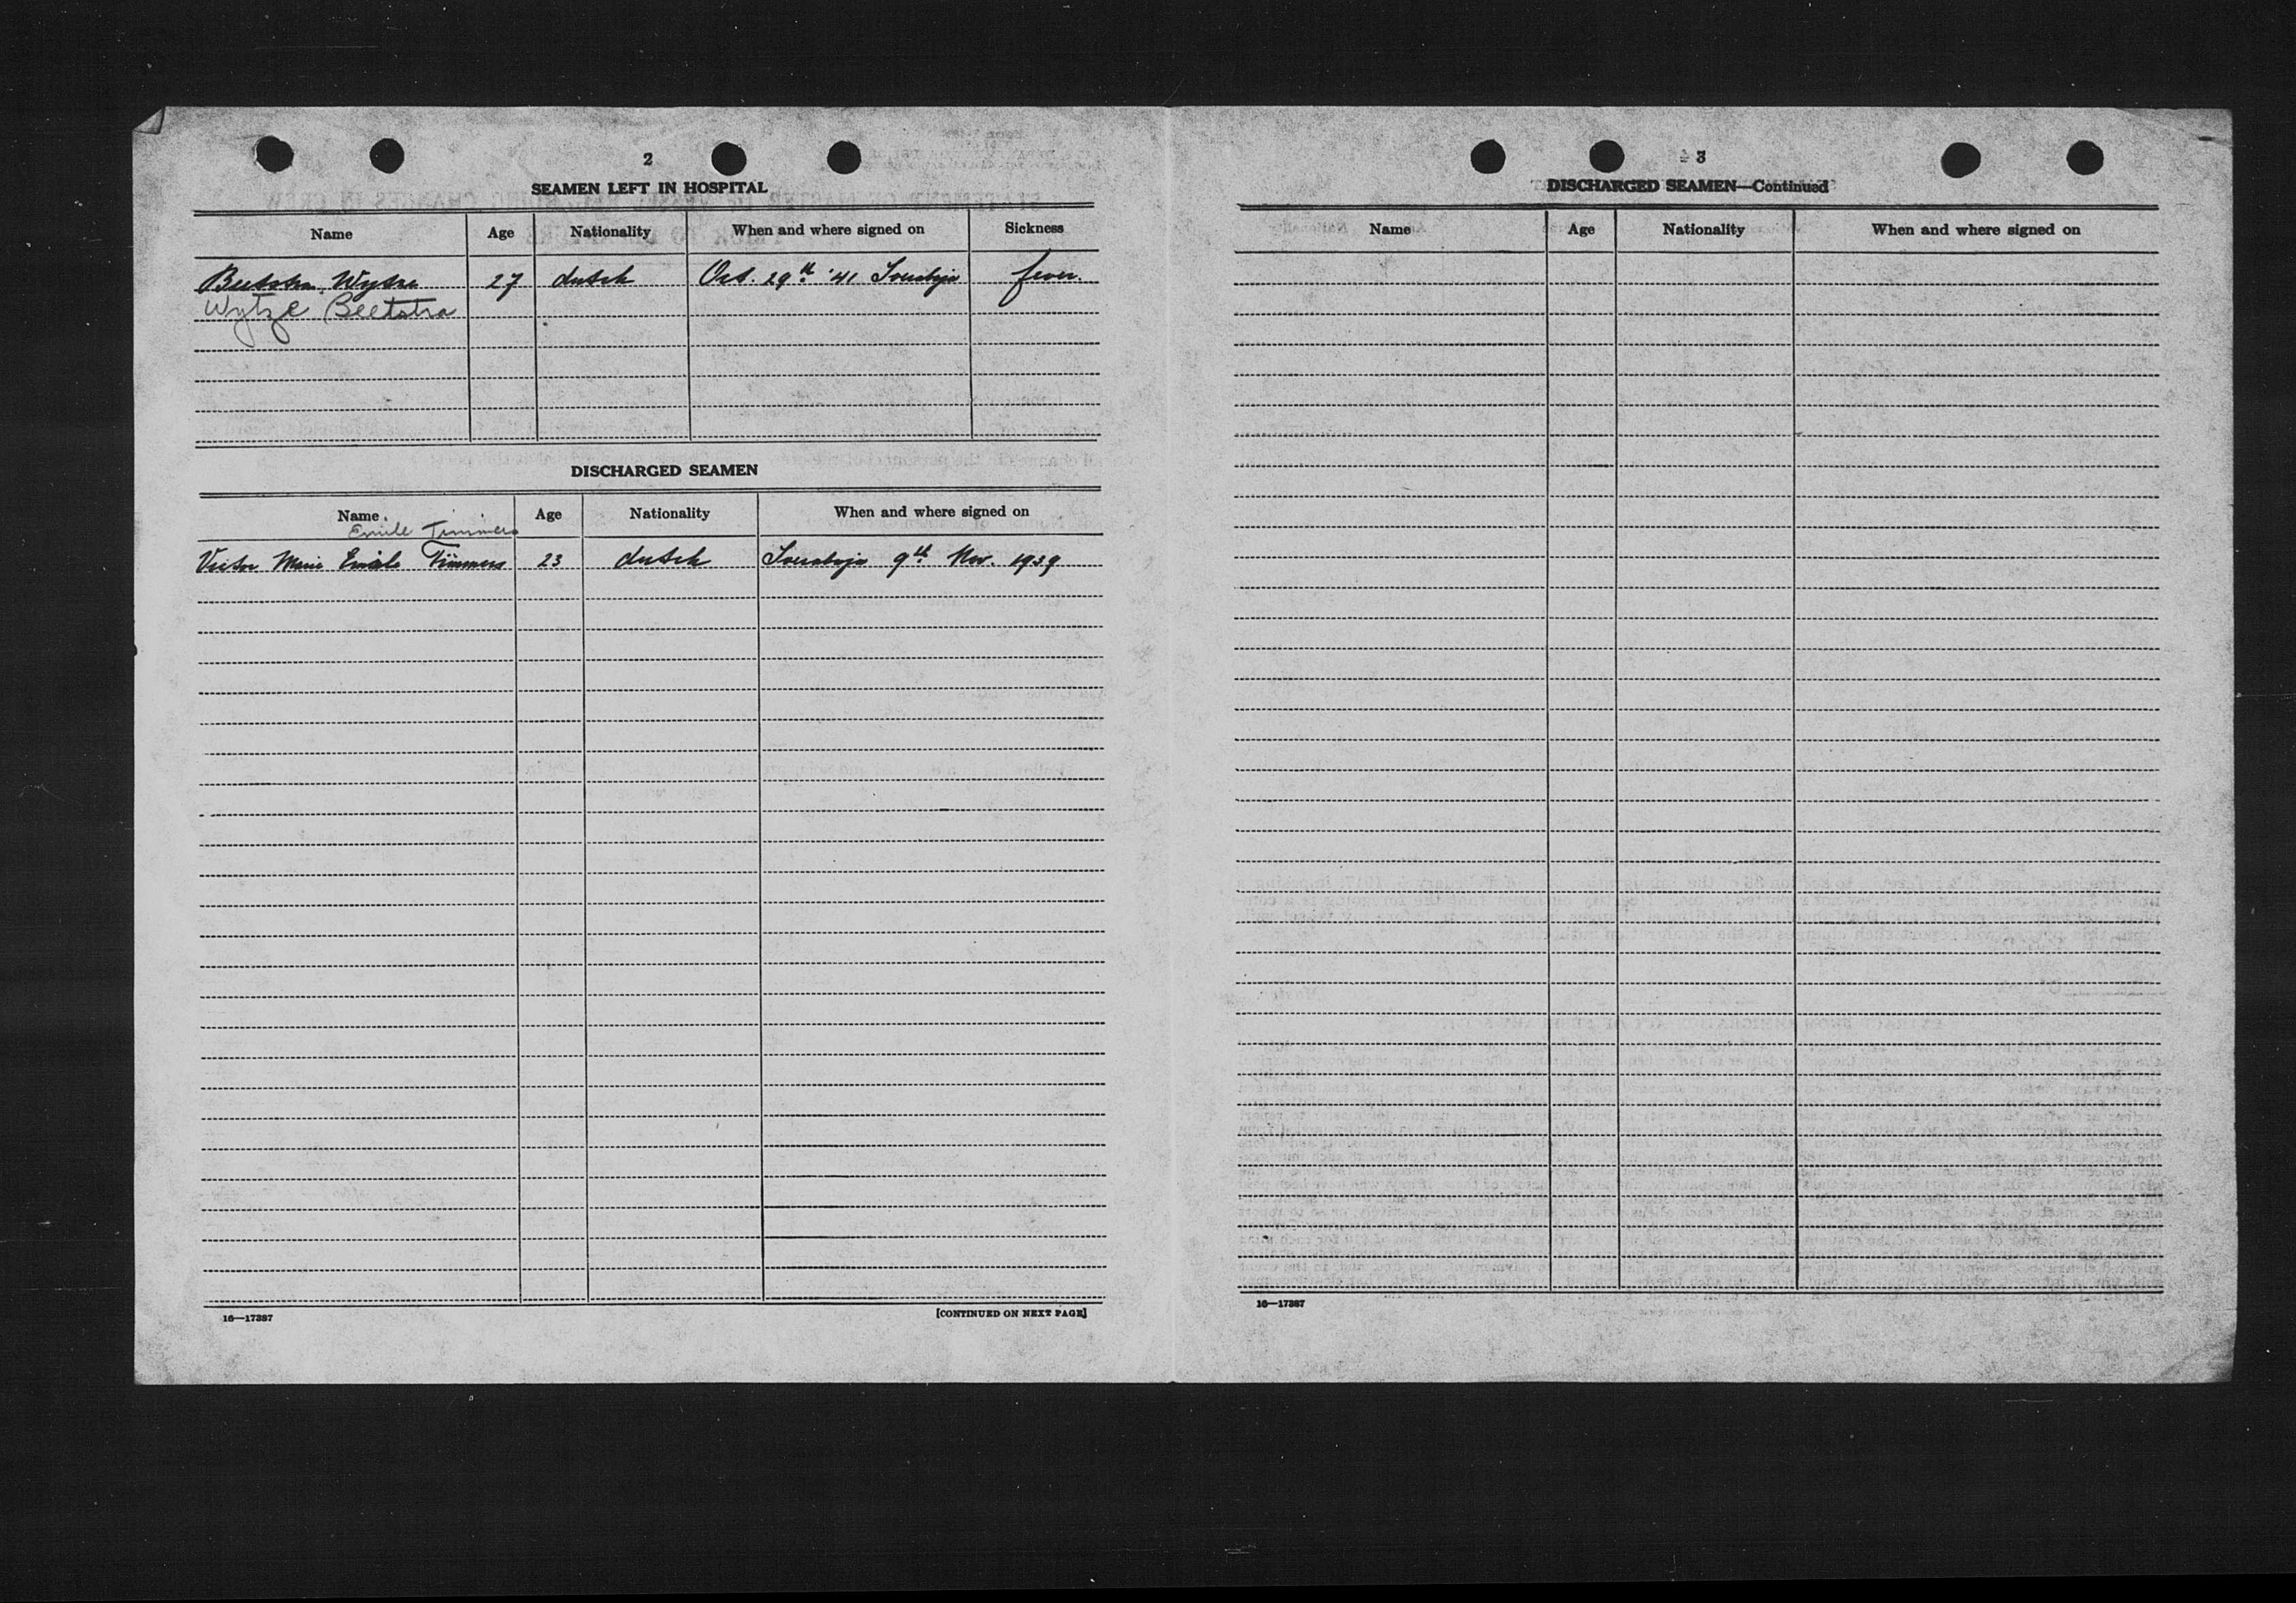 2
SEAMEN LEFT IN HOSPITAL
Name Age Nationality When and where signed on Sickness
Beetstra, Wytze 27 dutch Oct. 29th '41 Soerabaja fever.
Wytze Beetstra
DISCHARGED SEAMEN
Name Age Nationality When and where signed on
Emile Timmers
Victor Marie Emile Timmers 23 dutch Soerabaja 9th Nov. 1939
16—17387
[CONTINUED ON NEXT PAGE]
3
DISCHARGED SEAMEN—Continued
Name Age Nationality When and where signed on
16—17387